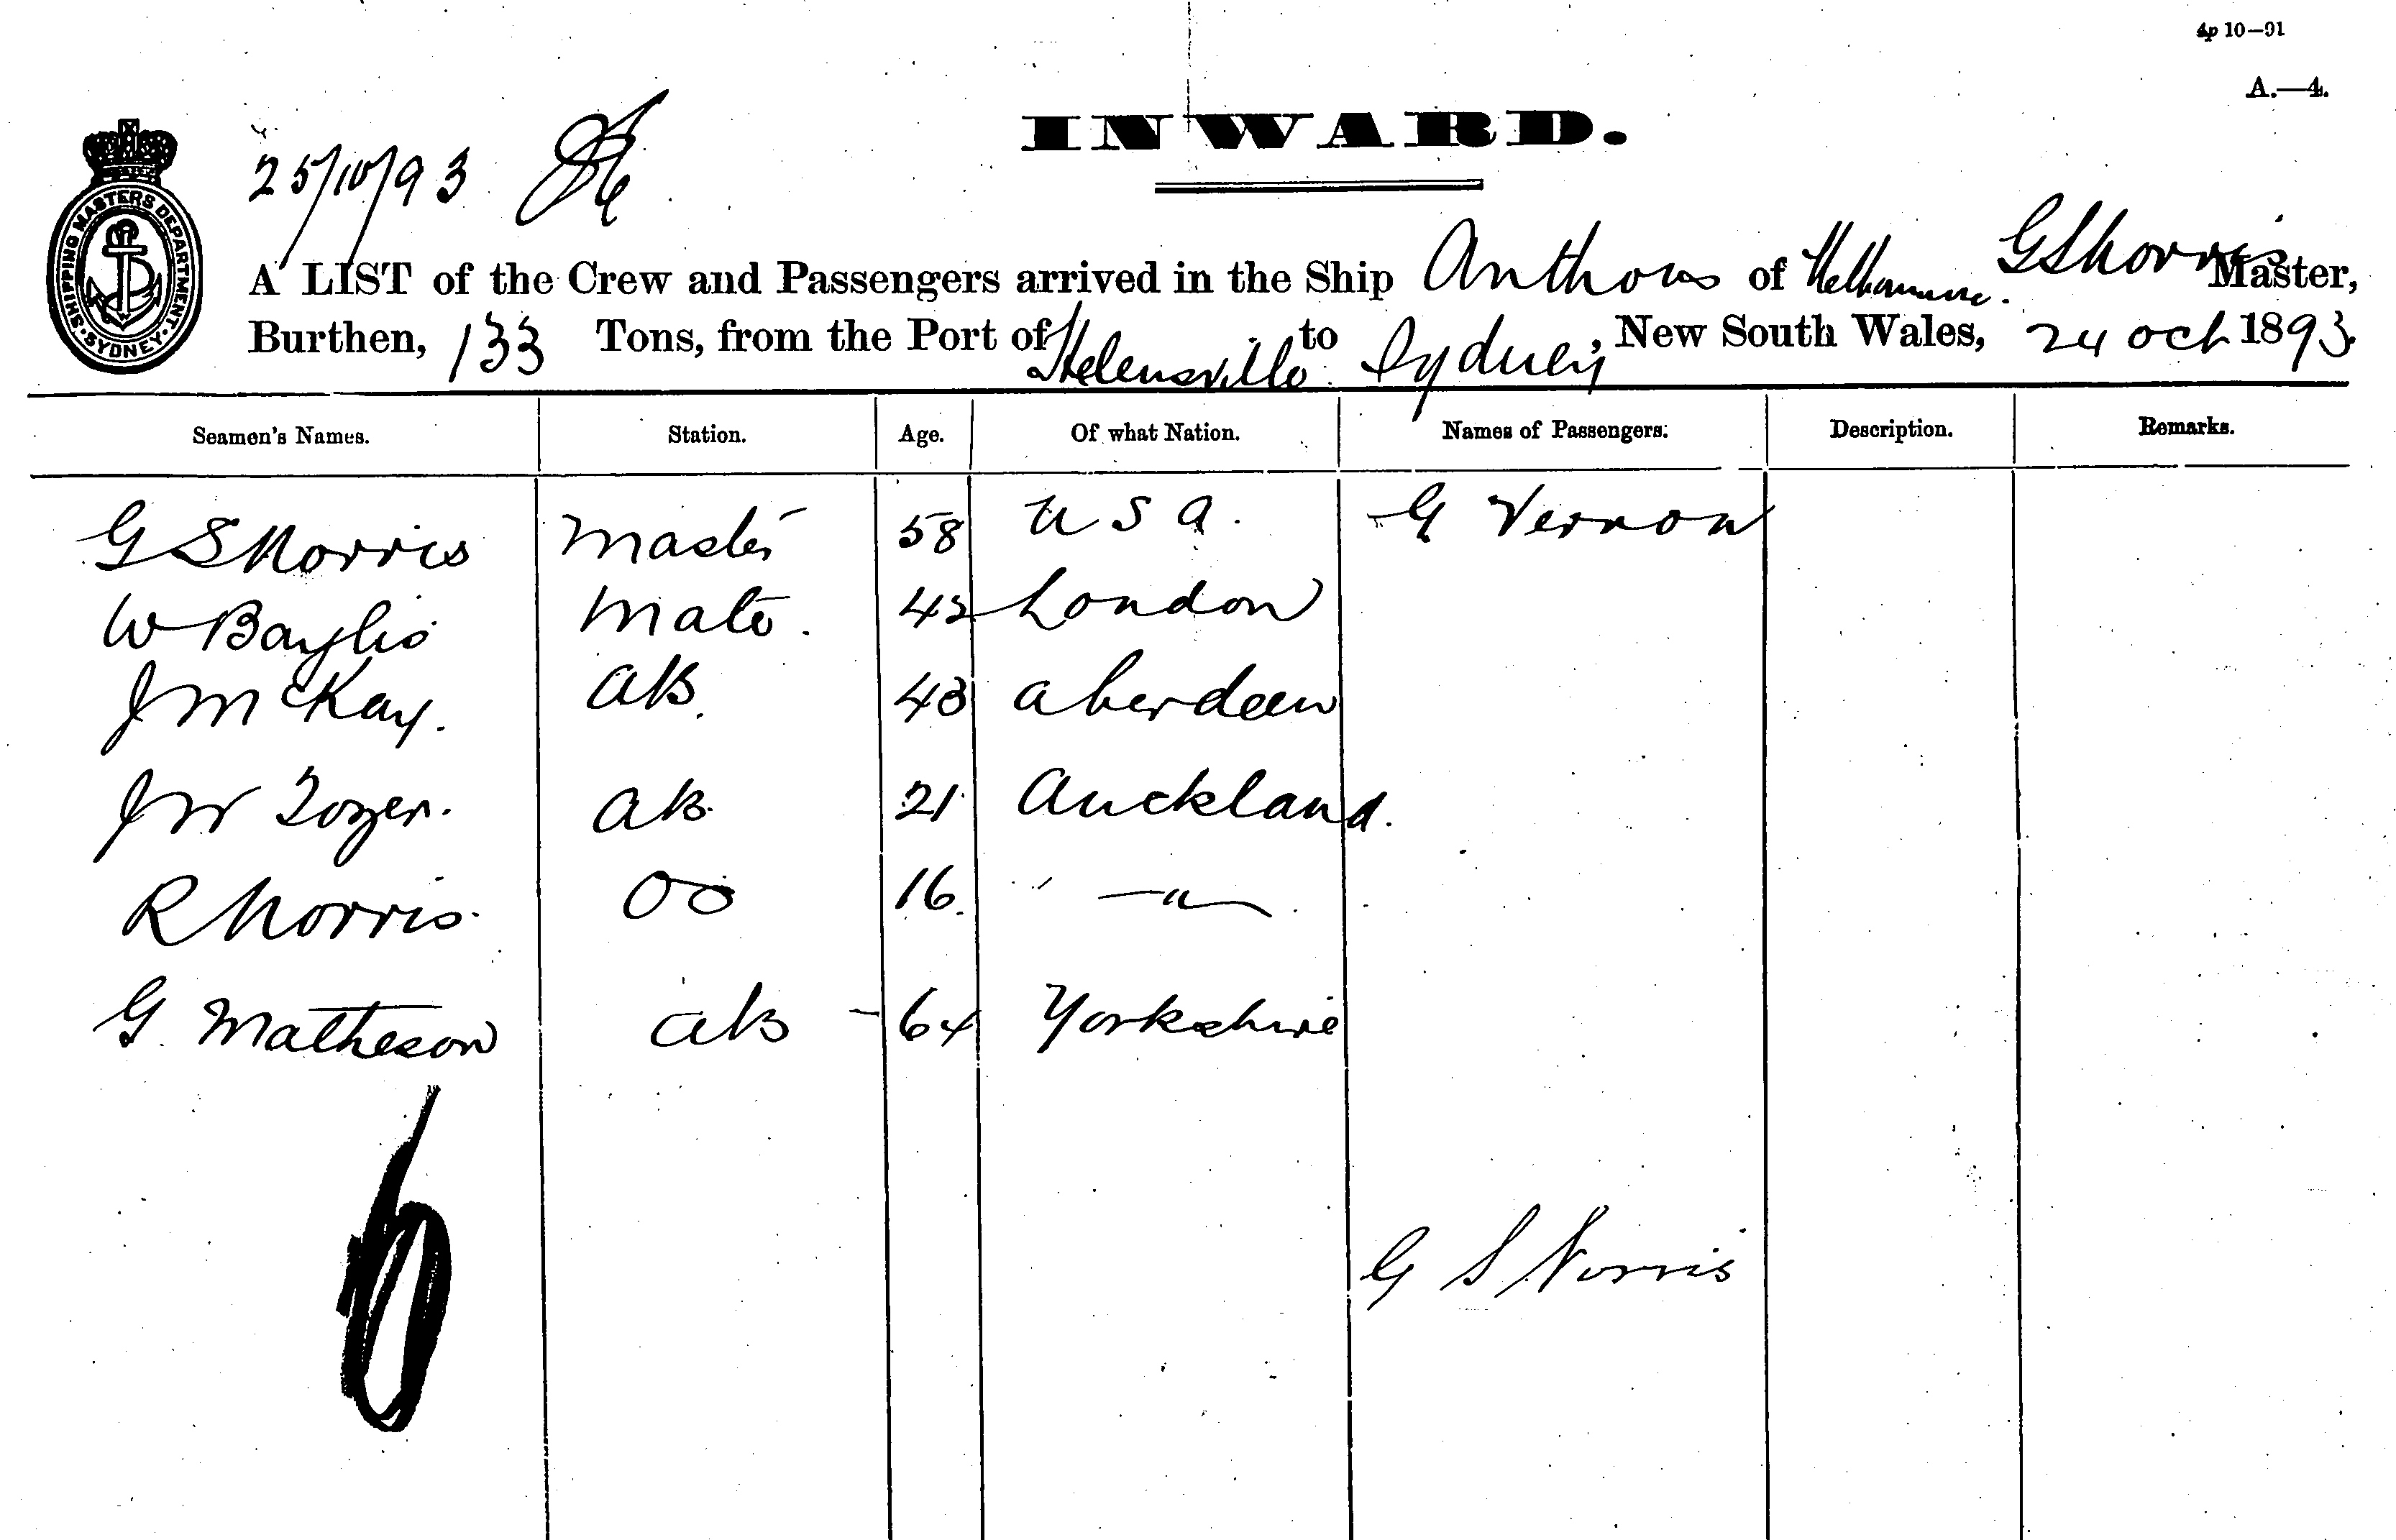 4p 10—91
A.—4.
INWARD.
25/10/93
SHIPPING MASTERS DEPARTMENT
SYDNEY
A LIST of the Crew and Passengers arrived in the Ship Anthons of G S Norris Master,
Burthen, 133 Tons, from the Port of Helensville to Sydney, New South Wales, 24 Oct 1893.
Seamen's Names. Station. Age. Of what Nation. Names of Passengers. Description. Remarks.
G S Norris Master 58 U S A. G Vernon
W Baylis Mate. 42 London
J McKay. AB. 43 Aberdeen
J W Tozer. AB. 21 Auckland.
R Norris. OS 16. —"—
G. Matheson AB 64 Yorkshire
6
G S Norris